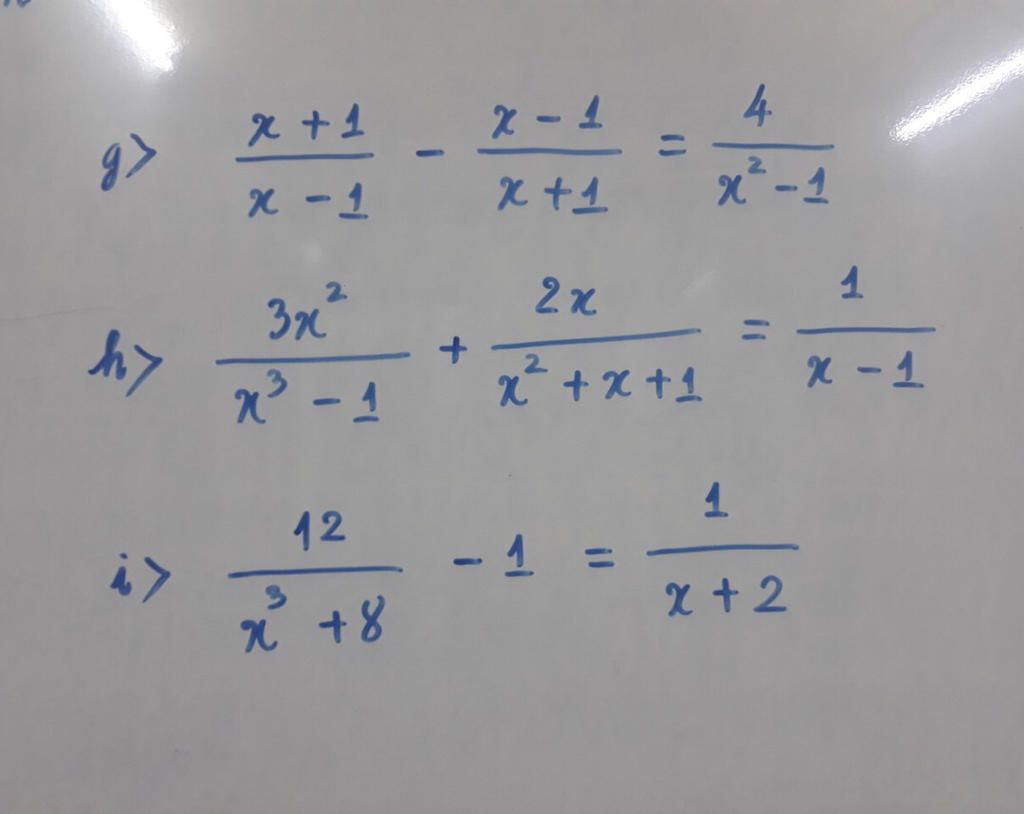 g> \frac{x+1}{x-1} - \frac{x-1}{x+1} = \frac{4}{x^2-1}
h> \frac{3x^2}{x^3-1} + \frac{2x}{x^2+x+1} = \frac{1}{x-1}
i> \frac{12}{x^3+8} - 1 = \frac{1}{x+2}